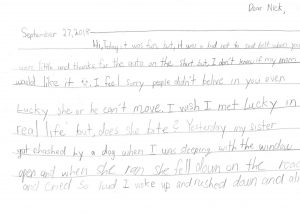 Dear Nick,
September 27, 2018
Hi, Today it was fun but, it was a bad not to sad bell when you
was little and thanks for the auto on the start but, I don't know if my mom
would like it I feel sorry people didn't believe in you even
Lucky she or he can't move. I wish I met Lucky in
real life but, does she bite? Yesterday my sister
got chashed by a dog when I was sleeping with the window
open and when she ran she fell down on the road
and cried so loud I woke up and rushed down and